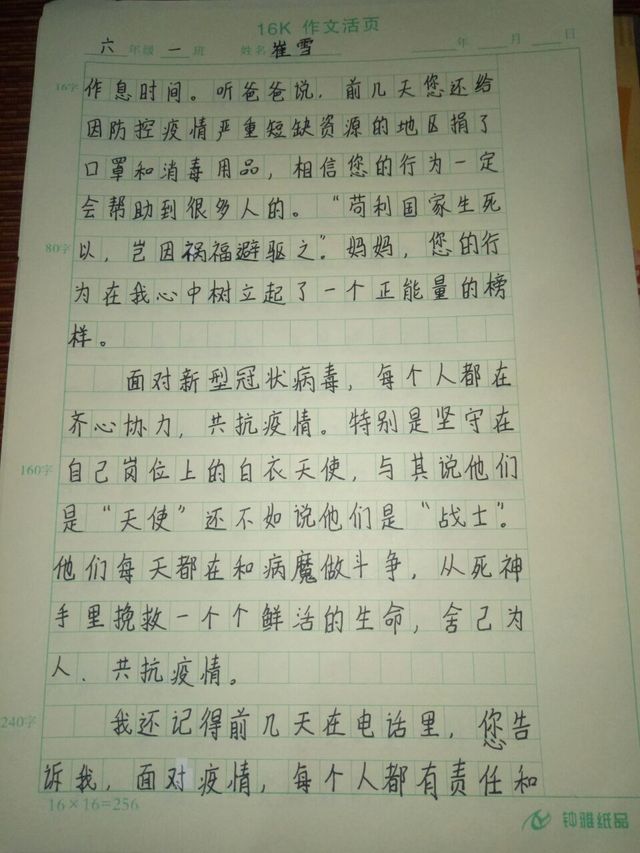 16K 作文活页
六 年级 一 班 姓名 崔雪 年 月 日
16字
作息时间。听爸爸说，前几天您还给
因防控疫情严重短缺资源的地区捐了
口罩和消毒用品，相信您的行为一定
会帮助到很多人的。“苟利国家生死
80字
以，岂因祸福避驱之”。妈妈，您的行
为在我心中树立起了一个正能量的榜
样。
面对新型冠状病毒，每个人都在
齐心协力，共抗疫情。特别是坚守在
160字
自己岗位上的白衣天使，与其说他们
是“天使”还不如说他们是“战士”。
他们每天都在和病魔做斗争，从死神
手里挽救一个个鲜活的生命，舍己为
人、共抗疫情。
240字
我还记得前几天在电话里，您告
诉我，面对疫情，每个人都有责任和
16×16=256
钟雅纸品